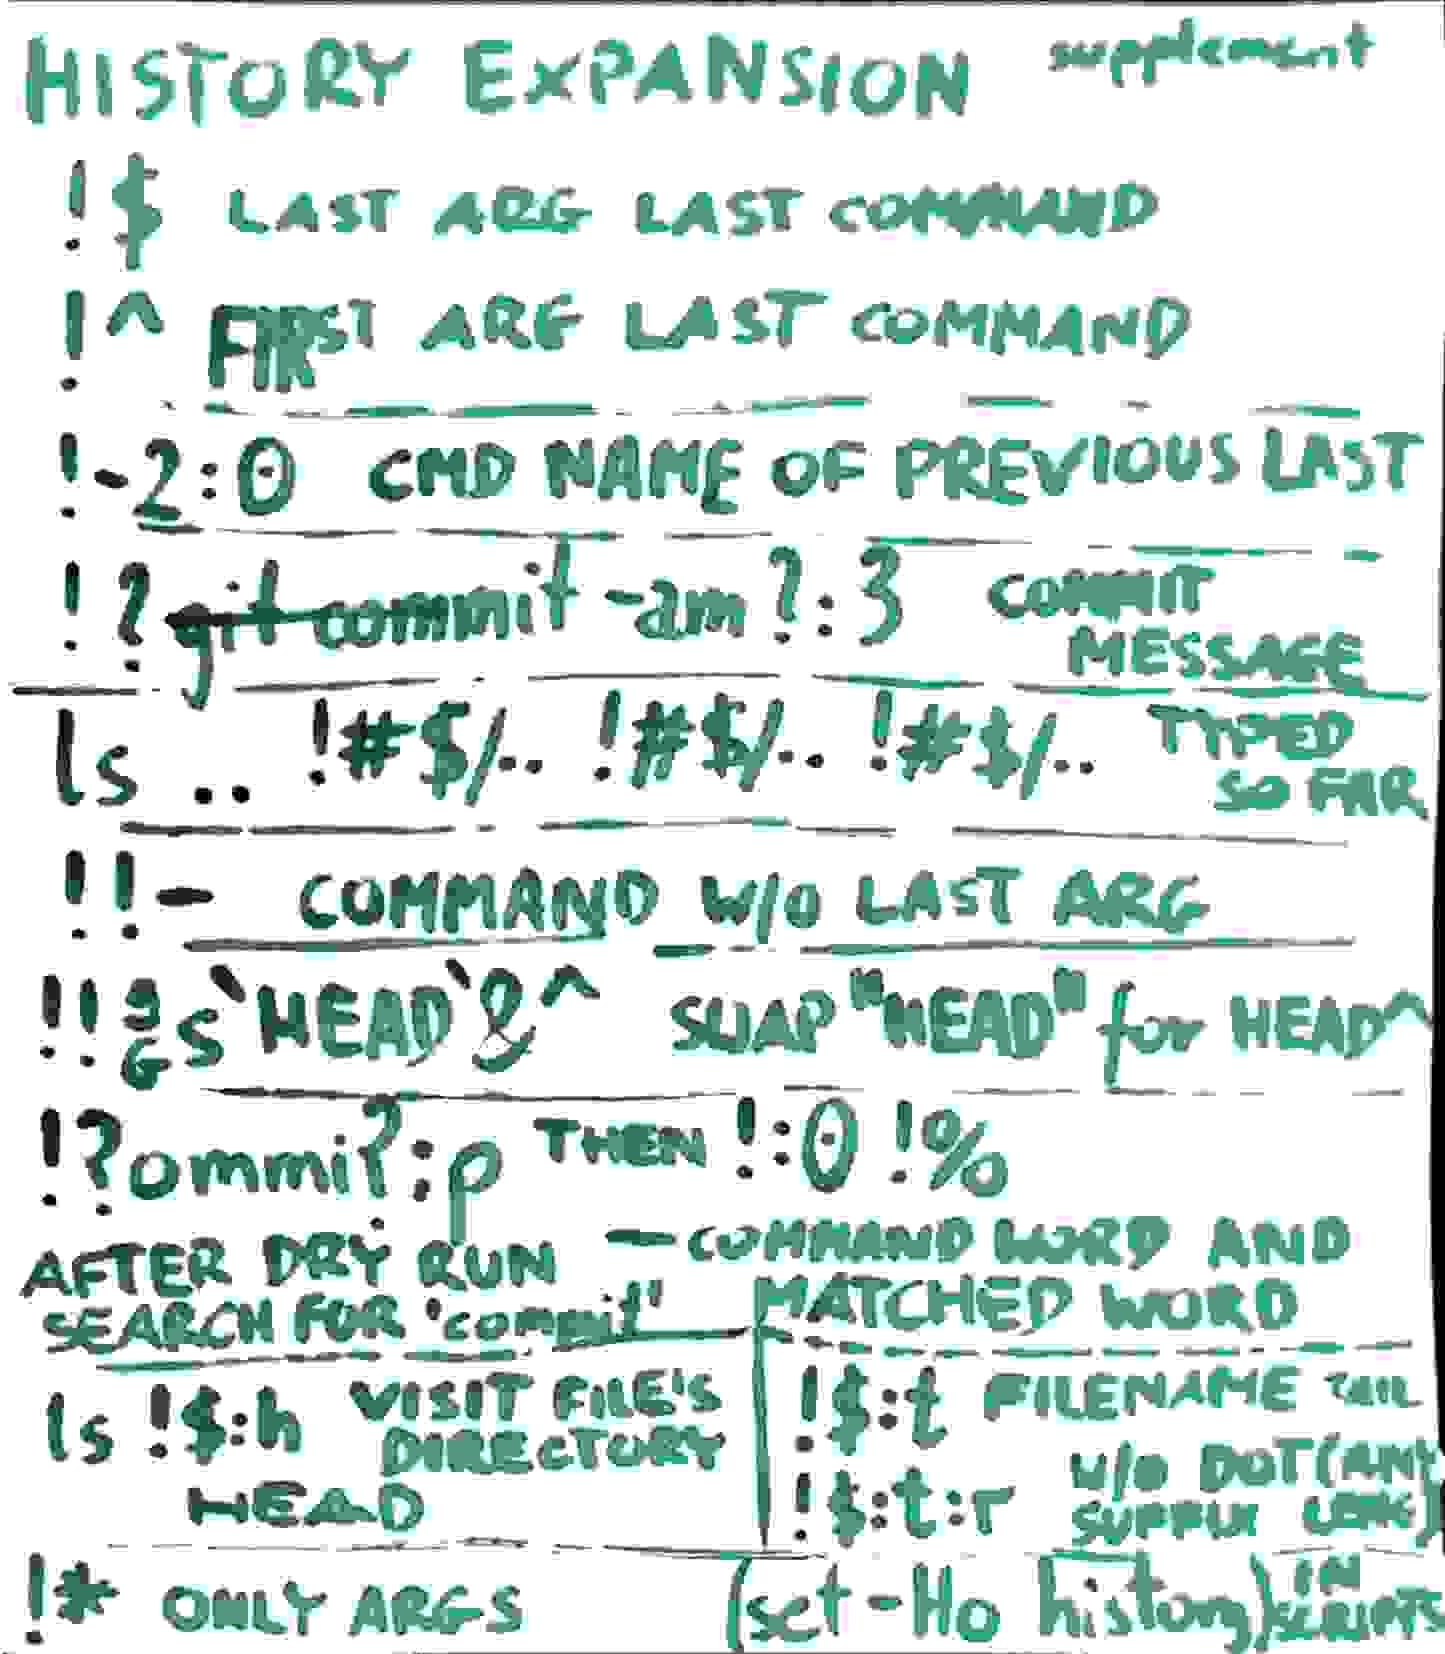 HISTORY EXPANSION supplement
!$ LAST ARG LAST COMMAND
!^ FIRST ARG LAST COMMAND
!-2:0 CMD NAME OF PREVIOUS LAST
!?git commit -am?:3 COMMIT
MESSAGE
ls .. !#$/.. !#$/.. !#$/.. TYPED
SO FAR
!!- COMMAND W/O LAST ARG
!!:
gs`HEAD`&^ SWAP "HEAD" for HEAD^
G
!?ommi?:p THEN !:0 !%
AFTER DRY RUN
SEARCH FOR 'commit'
— COMMAND WORD AND
MATCHED WORD
ls !$:h VISIT FILE'S
DIRECTORY
HEAD
!$:t FILENAME TAIL
!$:t:r W/O DOT (ANY
SUFFIX LENG)
!* ONLY ARGS
(set -Ho history) IN
SCRIPTS